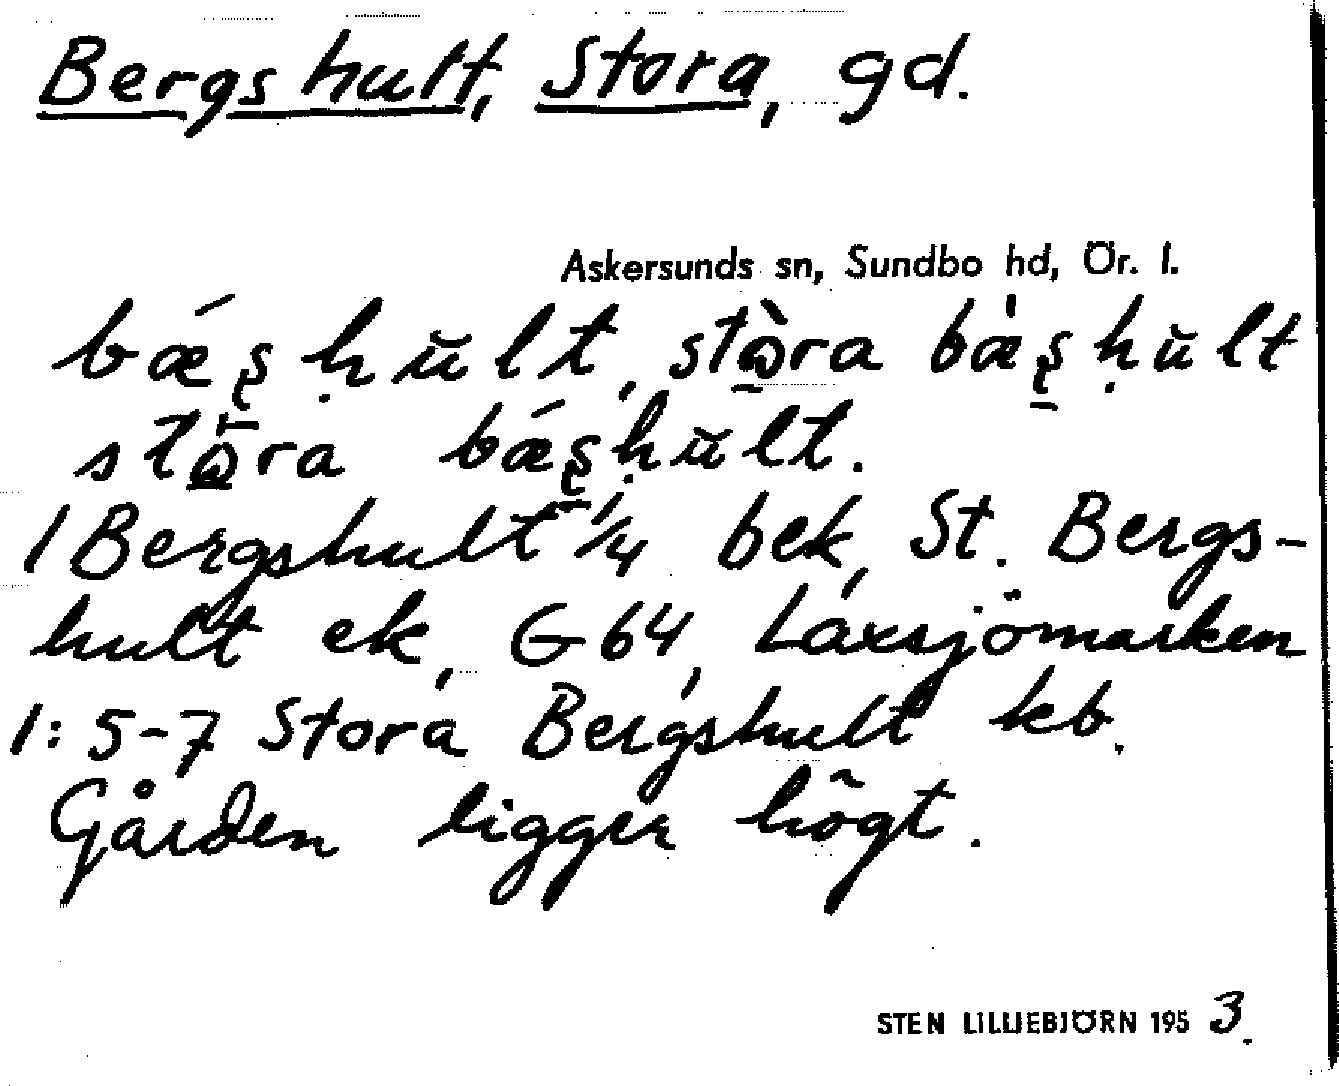 Bergshult, Stora, gd.
Askersunds sn, Sundbo hd, Ör. l.
bǽʂḥŭlt, stòra bæ̀ʂḥŭlt
stōra bǽʂḥŭlt.
1 Bergshult 1/4 bek, St. Bergs-
hult ek, G 64, Laxsjömarken
1:5-7 Stora Bergshult kb.
Gården ligger högt.
STEN LILLIEBJÖRN 1953.